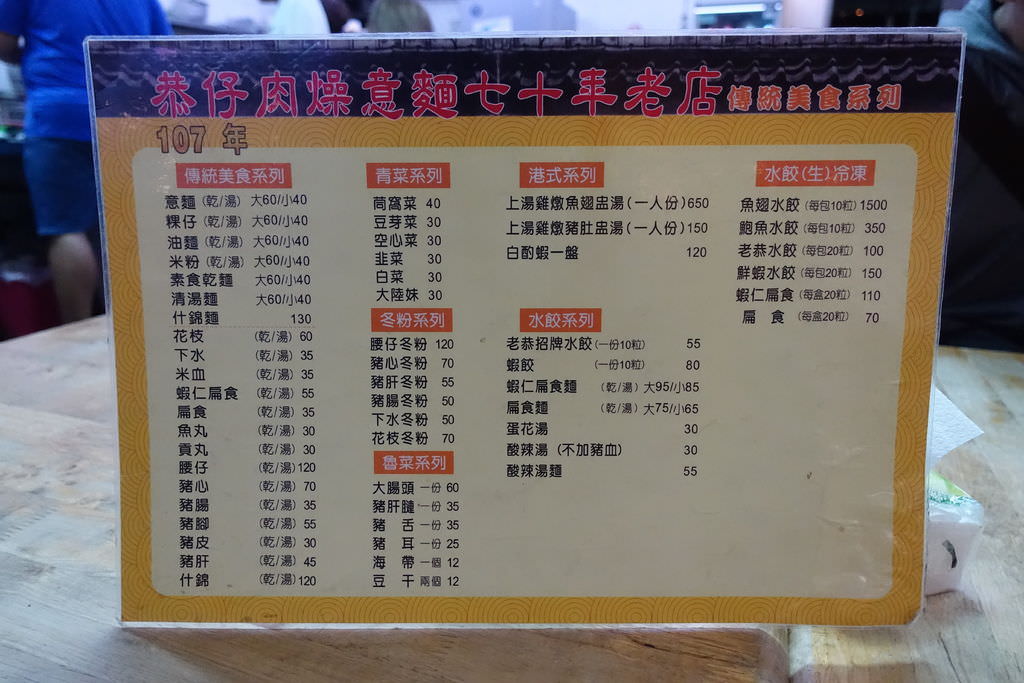 恭仔肉燥意麵七十年老店 傳統美食系列
107 年
傳統美食系列
意麵 (乾/湯) 大60/小40
粿仔 (乾/湯) 大60/小40
油麵 (乾/湯) 大60/小40
米粉 (乾/湯) 大60/小40
素食乾麵 大60/小40
清湯麵 大60/小40
什錦麵 130
花枝 (乾/湯) 60
下水 (乾/湯) 35
米血 (乾/湯) 35
蝦仁扁食 (乾/湯) 55
扁食 (乾/湯) 35
魚丸 (乾/湯) 30
貢丸 (乾/湯) 30
腰仔 (乾/湯) 120
豬心 (乾/湯) 70
豬腸 (乾/湯) 35
豬腳 (乾/湯) 55
豬皮 (乾/湯) 30
豬肝 (乾/湯) 45
什錦 (乾/湯) 120
青菜系列
茼窩菜 40
豆芽菜 30
空心菜 30
韭菜 30
白菜 30
大陸妹 30
冬粉系列
腰仔冬粉 120
豬心冬粉 70
豬肝冬粉 55
豬腸冬粉 50
下水冬粉 50
花枝冬粉 70
魯菜系列
大腸頭 一份 60
豬肝膸 一份 35
豬 舌 一份 35
豬 耳 一份 25
海 帶 一個 12
豆 干 兩個 12
港式系列
上湯雞燉魚翅盅湯(一人份) 650
上湯雞燉豬肚盅湯(一人份) 150
白酌蝦一盤 120
水餃系列
老恭招牌水餃 (一份10粒) 55
蝦餃 (一份10粒) 80
蝦仁扁食麵 (乾/湯) 大95/小85
扁食麵 (乾/湯) 大75/小65
蛋花湯 30
酸辣湯 (不加豬血) 30
酸辣湯麵 55
水餃(生)冷凍
魚翅水餃 (每包10粒) 1500
鮑魚水餃 (每包10粒) 350
老恭水餃 (每包20粒) 100
鮮蝦水餃 (每包20粒) 150
蝦仁扁食 (每盒20粒) 110
扁 食 (每盒20粒) 70